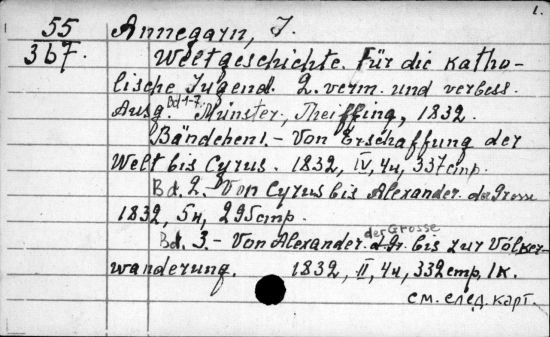 1.
55
367.
Annegarn, J.
Weltgeschichte. Für die katho-
lische Jugend. 2. verm. und verbess.
Ausg. Bd 1-7. Münster, Theiffing, 1832.
Bändchen 1. - Von Erschaffung der
Welt bis Cyrus. 1832, IV, 4н, 337 стр.
Bd. 2. - Von Cyrus bis Alexander. der Grosse
1832, 5н, 295 стр.
Bd. 3. - Von Alexander. d. Gr. der Grosse bis zur Völker-
wanderung. 1832, II, 4н, 332 стр, 1к.
см. след. карт.